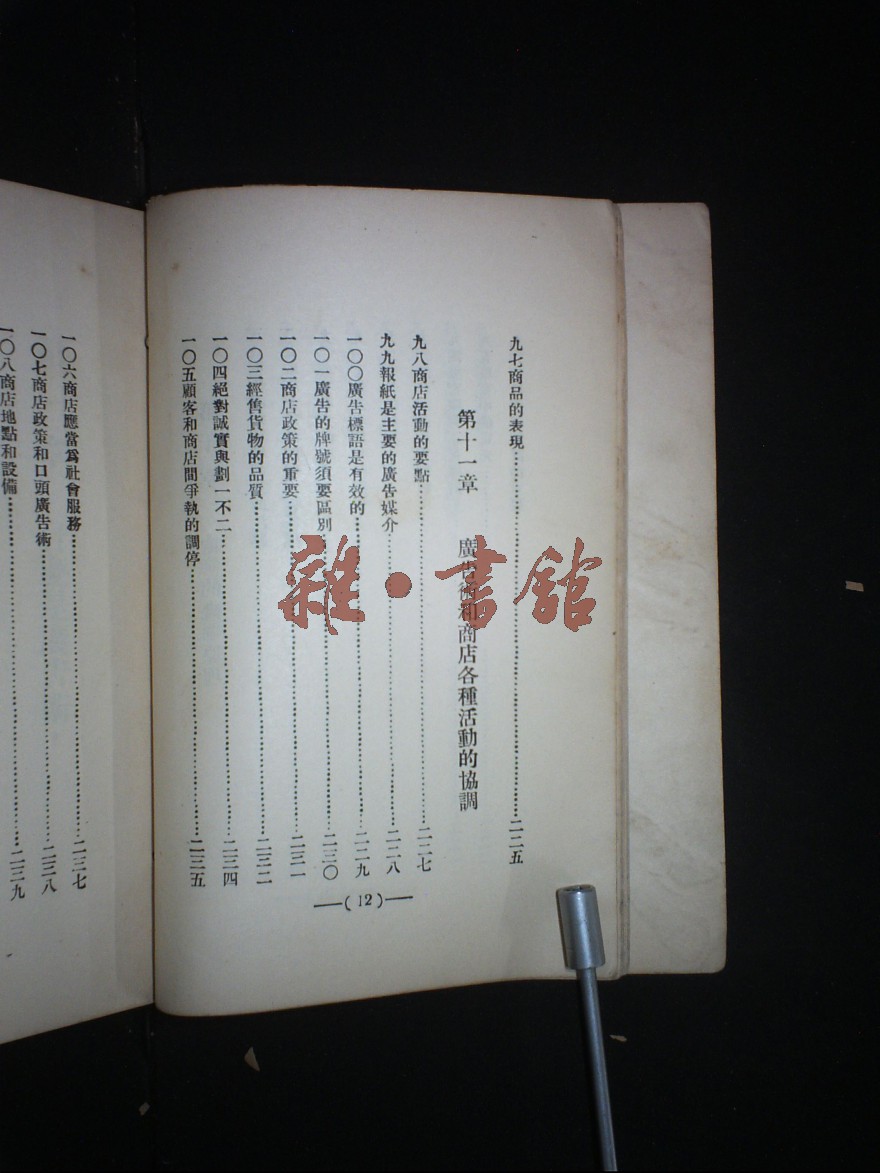 九七商品的表現……二二五
第十一章　廣告術和商店各種活動的協調
九八商店活動的要點……二二七
九九報紙是主要的廣告媒介……二二八
一〇〇廣告標語是有效的……二二九
一〇一廣告的牌號須要區別……二三〇
一〇二商店政策的重要……二三一
一〇三經售貨物的品質……二三二
一〇四絕對誠實與劃一不二……二三四
一〇五顧客和商店間爭執的調停……二三五
—(12)—
一〇六商店應當爲社會服務……二三七
一〇七商店政策和口頭廣告術……二三八
一〇八商店地點和設備……二三九
雜·書館